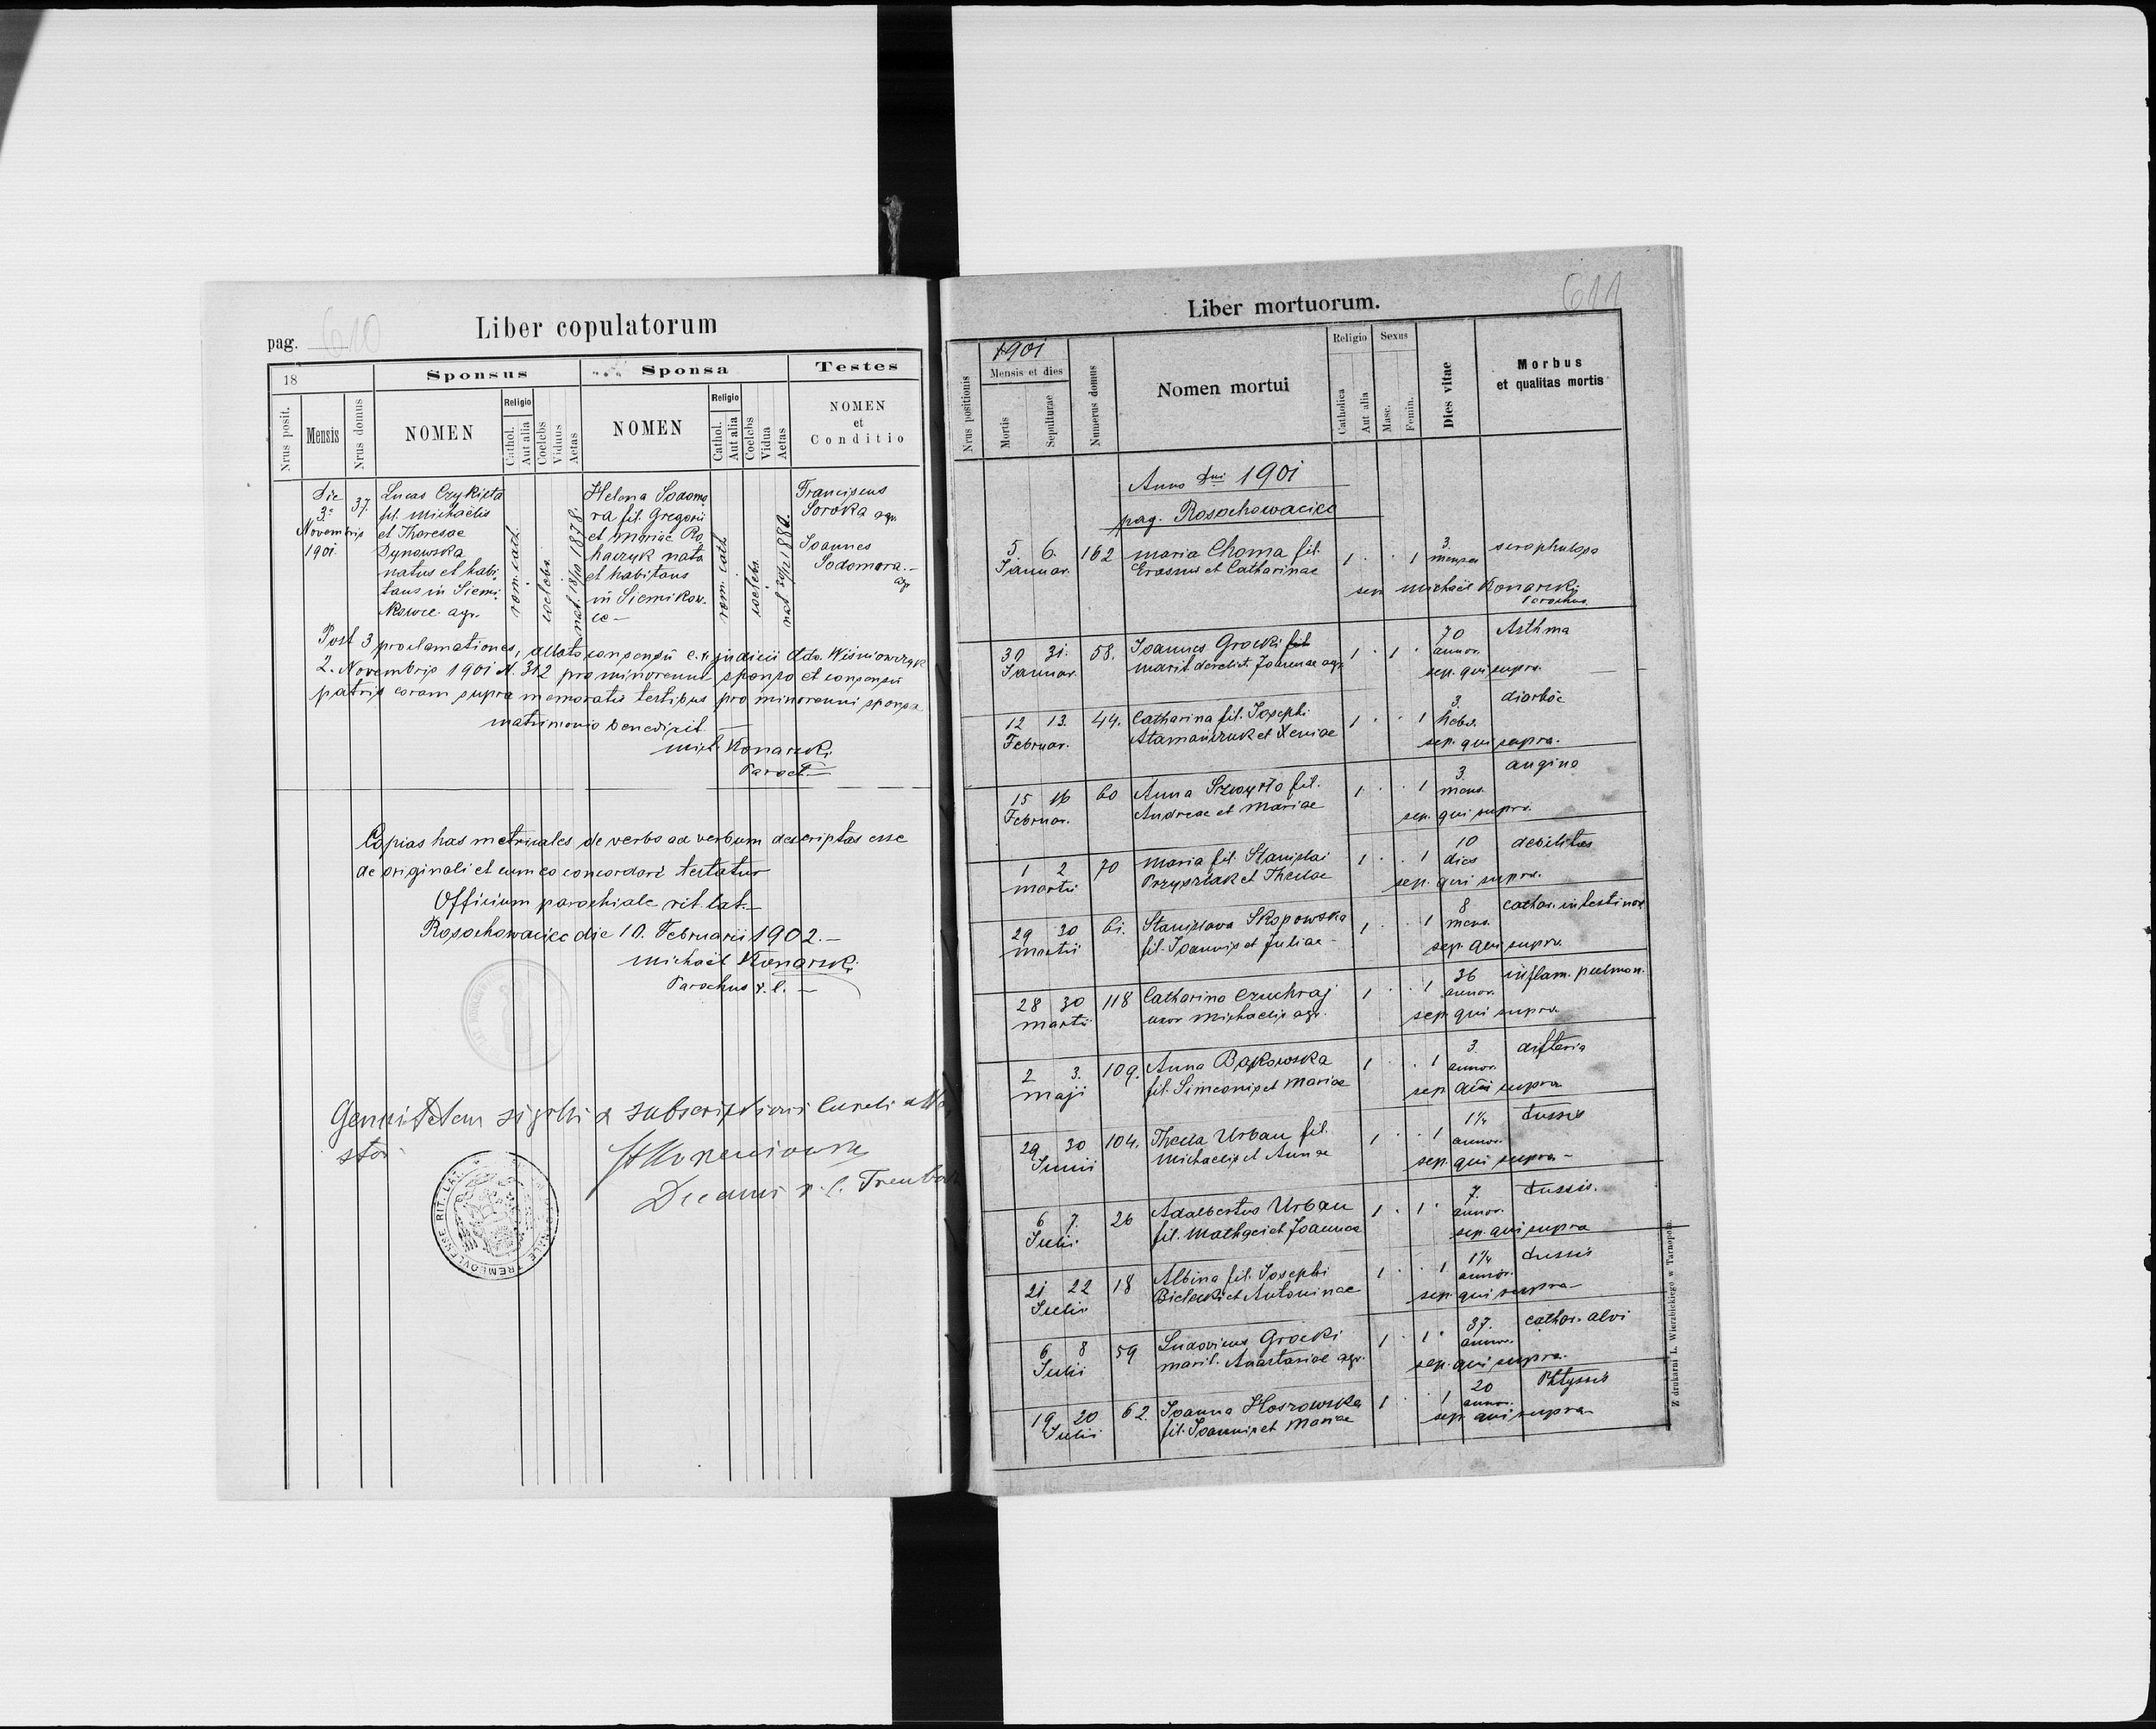 pag. 610
Liber copulatorum
18
Sponsus
Sponsa
Testes
Nrus posit.
Mensis
Nrus domus
NOMEN
Religio
Cathol.
Aut alia
Coelebs
Viduus
Aetas
NOMEN
Religio
Cathol.
Aut alia
Coelebs
Vidua
Aetas
NOMEN
et
Conditio
Die
3ª
Novembris
1901.
37.
Lucas Czykieta
fil. Michaëlis
et Theresae
Dynowska
natus et habi-
tans in Siemi-
Kowce agr.
rom. cath.
coelebs
nat. 18/10 1878.
Helena Sodomo
ra fil. Gregorii
et Mariae Ro
haczyk nata
et habitans
in Siemikow-
ce —
rom. cath
coelebs.
Franciscus
Soroka agr.
Joannes
Sodomora. —
agr
Post 3 proclamationes, allato consensu c. k. judicii ddo. Wiśniowczyk
2. Novembris 1901 N. 312 pro minorenni sponso et consensu
patris coram supra memoratis testibus pro minorenni sponsa
matrimonio benedixit —
Mich. Konarski
Paroch —
Copias has metricales de verbo ad verbum descriptas esse
de originali et cum eo concordari testatur
Officium parochiale rit. lat. —
Rosochowaciec die 10. Februarii 1902. —
Michaël Konarski
Parochus r. l. —
Genuitatem sigilli & subscriptionis
Decanus r. l.
611
Liber mortuorum.
Nrus positionis
1901
Mensis et dies
Mortis
Sepulturae
Numerus domus
Nomen mortui
Religio
Catholica
Aut alia
Sexus
Masc.
Femin.
Dies vitae
Morbus
et qualitas mortis
Anno Dni 1901
pag. Rosochowaciec
5. 6. 162 Maria Choma fil. 1 . . 1 3. scrophulosa
Januar. Erasmus et Catharinae menses
sep. Michaël Konarski
Parochus.
30 31. 58. Joannes Grocki fil 1 . 1 . 70 Asthma
Januar. marit. derelict. Joannae agr. annor.
sep. qui supra.
12 13. 44. Catharina fil. Josephi 1 . . 1 3. diarhöe
Februar. Atamańczuk et Xeniae hebd.
sep. qui supra.
15 16 60 Anna Szwyrło fil. 1 . . 1 3. angina
Februar. Andreae et Mariae mens.
sep. qui supra.
1 2 70 Maria fil. Stanislai 1 . . 1 10 debilitas
Martii Przyszlak et Theclae dies
sep. qui supra.
29 30 61. Stanislava Skopowska 1 . . 1 8 cathar. intestinor.
Martii fil. Joannis et Juliae — mens.
sep. qui supra.
28 30 118 Catharina Czuchraj 1 . . 1 36 inflam. pulmon.
Martii uxor Michaelis agr. annor.
sep. qui supra.
2 3. 109. Anna Bąkowska 1 . . 1 3. difteria
Maji fil. Simeonis et Mariae annor.
sep. qui supra
29 30 104. Thecla Urban fil. 1 . . 1 1¼ tussis
Junii Michaelis et Annae annor.
sep. qui supra —
6 7. 26 Adalbertus Urban 1 . 1 . 7. tussis.
Julii fil. Mathaei et Joannae annor.
sep. qui supra
21 22 18 Albina fil. Josephi 1 . . 1 1¼ tussis
Julii Bielecki et Antoninae annor.
sep. qui supra —
6 8 59 Ludovicus Grocki 1 . 1 . 37. cathar. alvi
Julii marit. Anastasiae agr. annor.
sep. qui supra.
19 20 62. Joanna Hoszowska 1 . . 1 20 Phtyssis
Julii fil. Joannis et Mariae annor.
sep. qui supra —
Z drukarni L. Wierzbickiego w Tarnopolu.